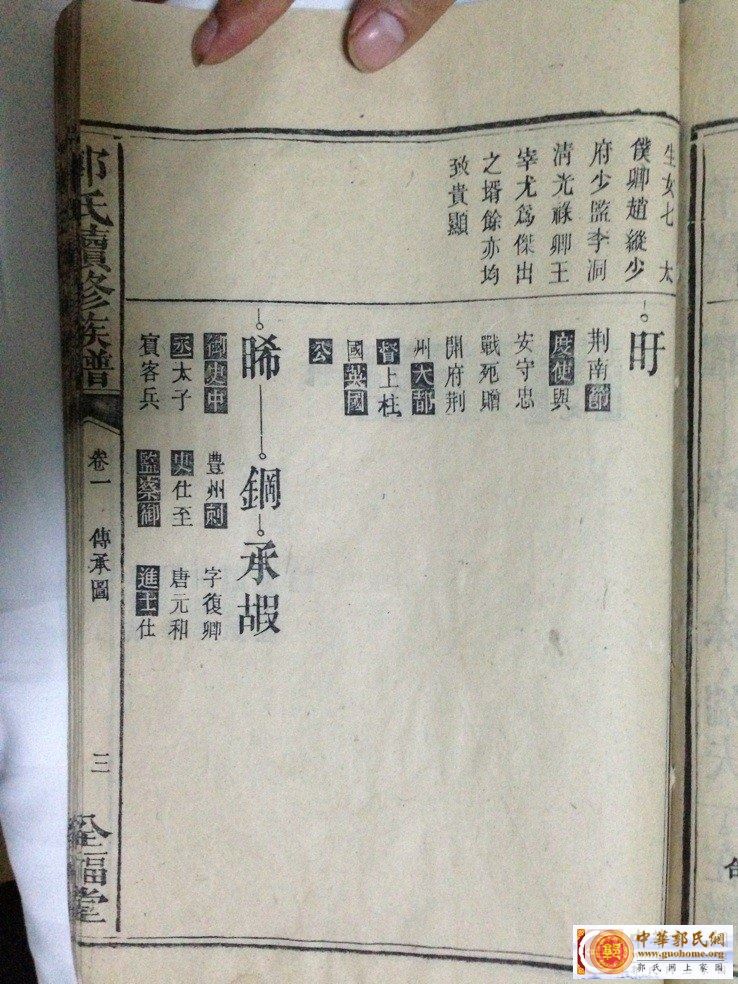 生女七 太
僕卿趙縱少
府少監李洞
清光祿卿王
宰尤爲傑出
之壻餘亦均
致貴顯
旰
荆南節
度使與
安守忠
戰死贈
開府荆
州大都
督上柱
國英國
公
晞 鋼 承嘏
御史中
丞太子
賓客兵
豊州刺
史仕至
監察御
字復卿
唐元和
進士仕
郭氏續修族譜
卷一 傳承圖
三
全福堂
中華郭氏網
www.guohome.org
郭氏网上家园